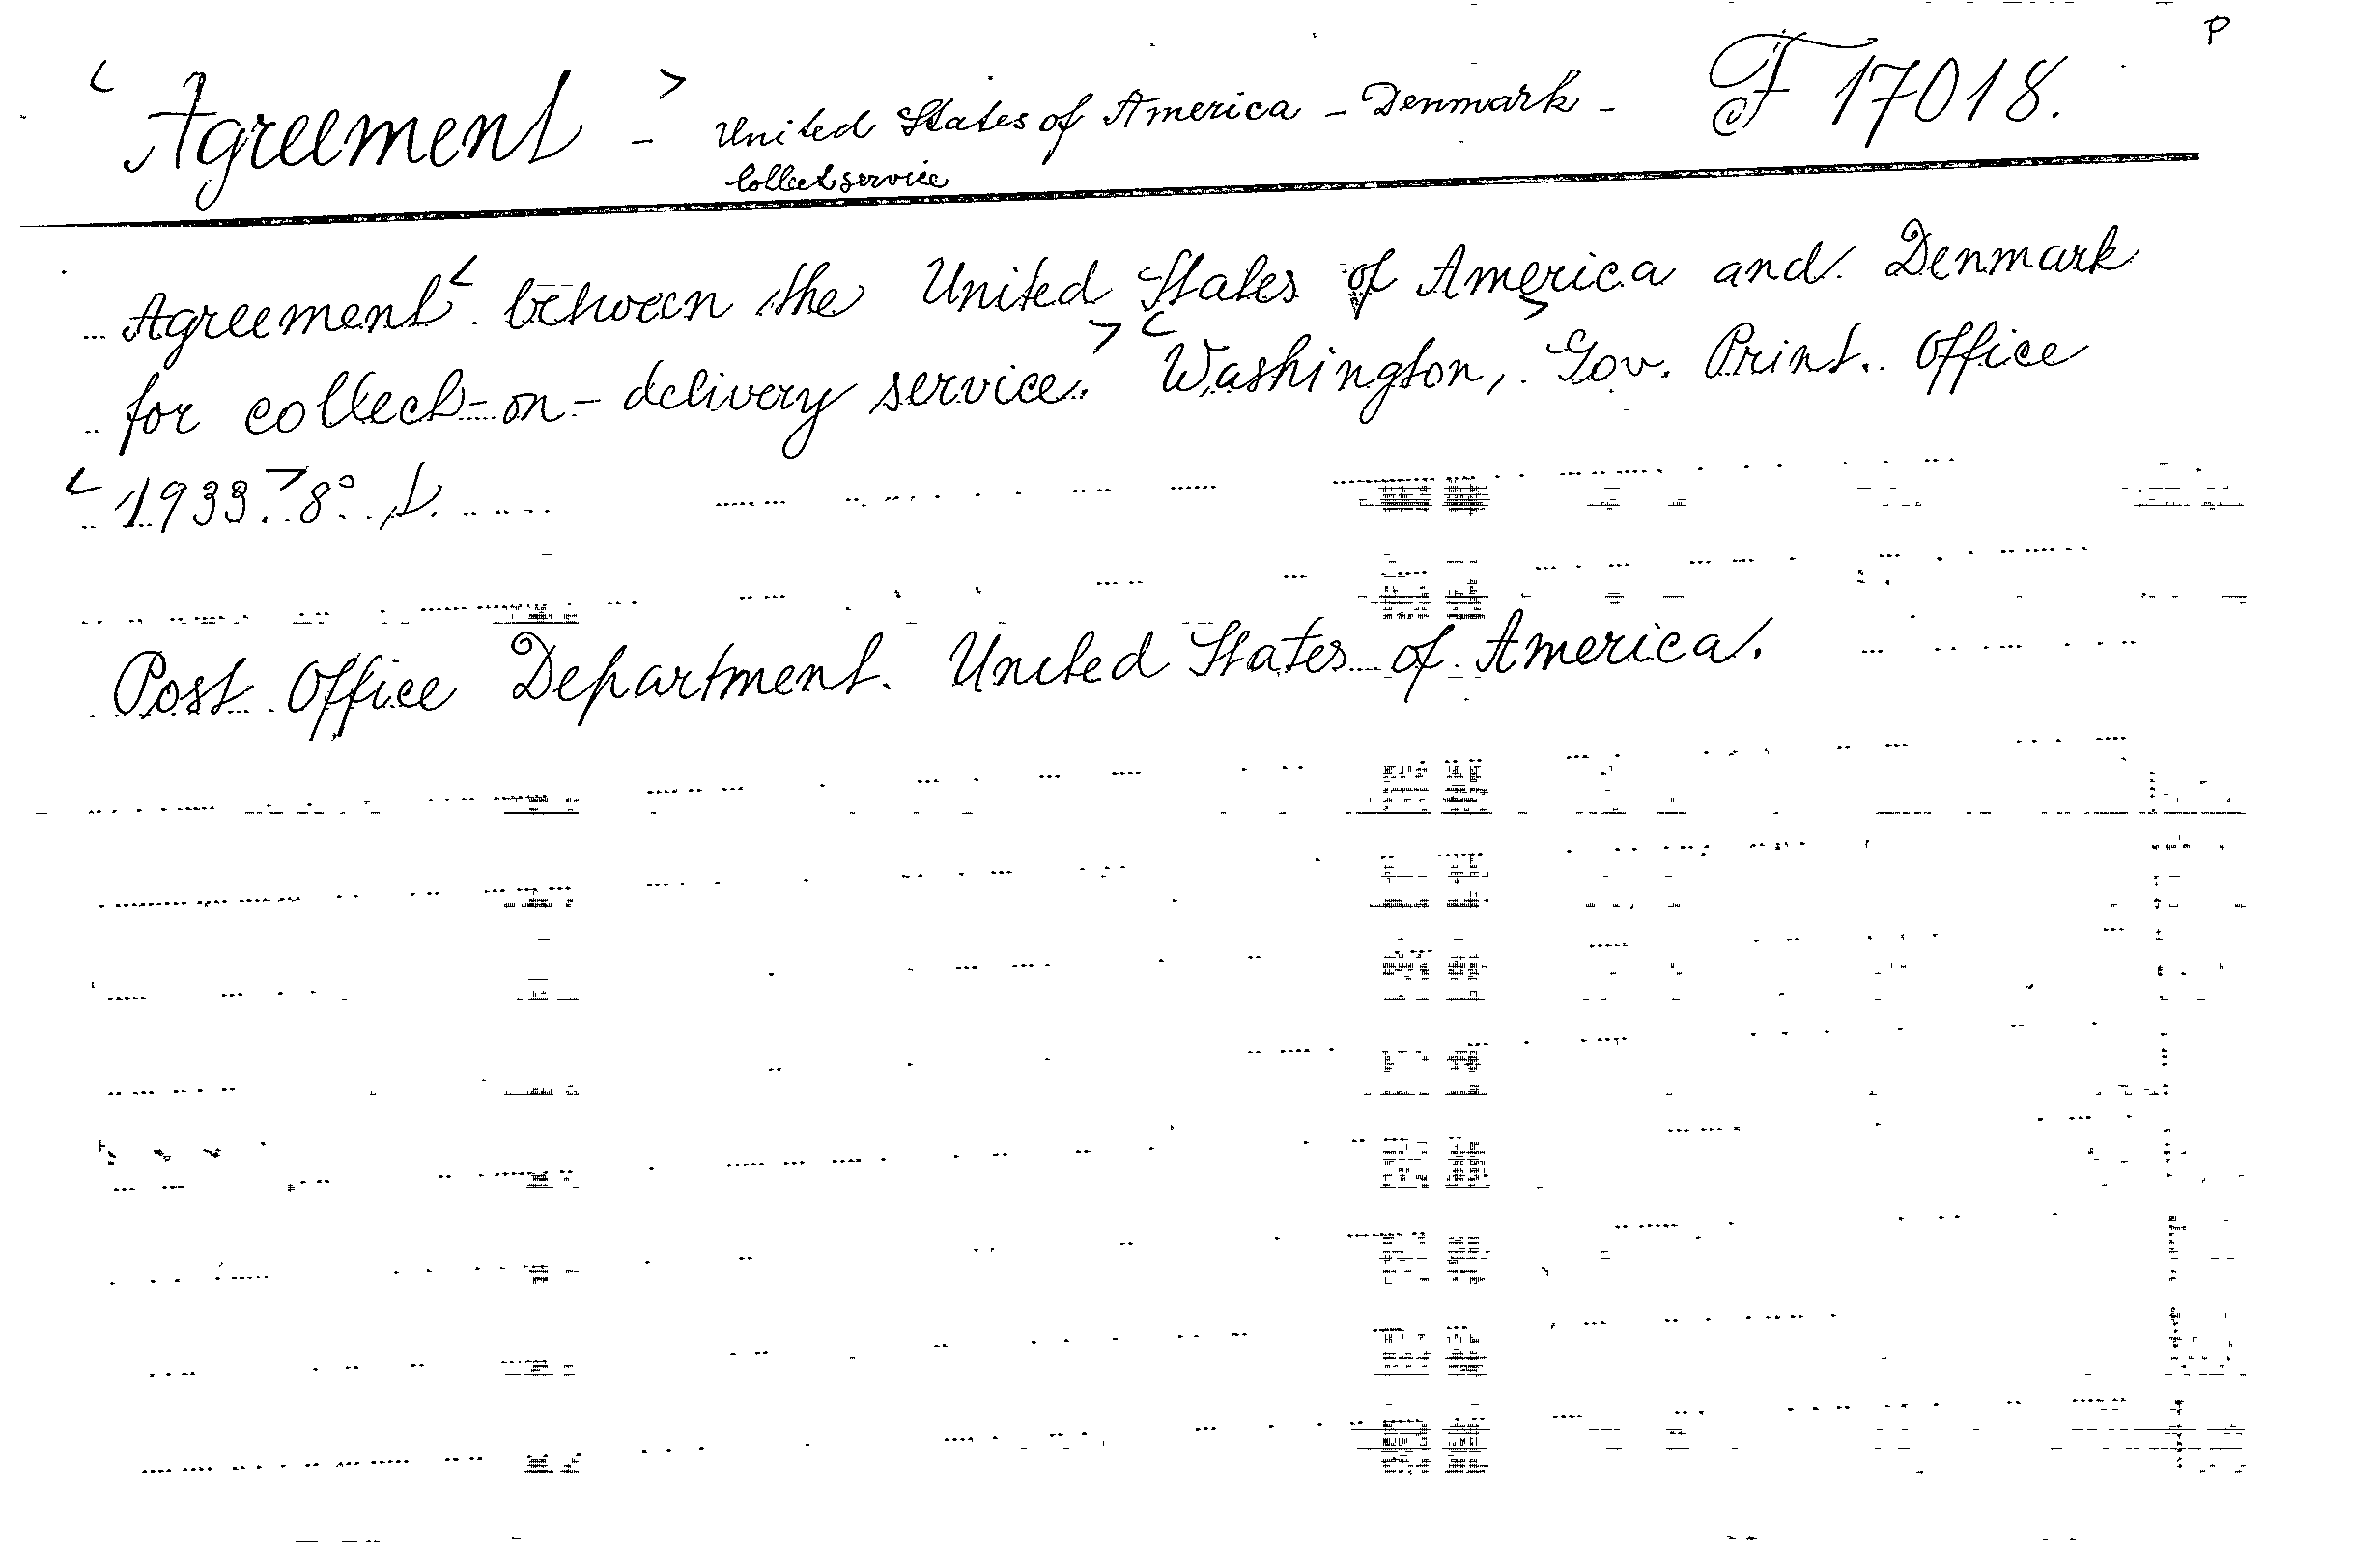 P
< Agreement > - United States of America - Denmark - F 17018.
Collect service
Agreement < between the United States of America and Denmark
for collect-on-delivery service. > < Washington, > Gov. Print. Office
< 1933. > 8°.
Post Office Department. United States of America.